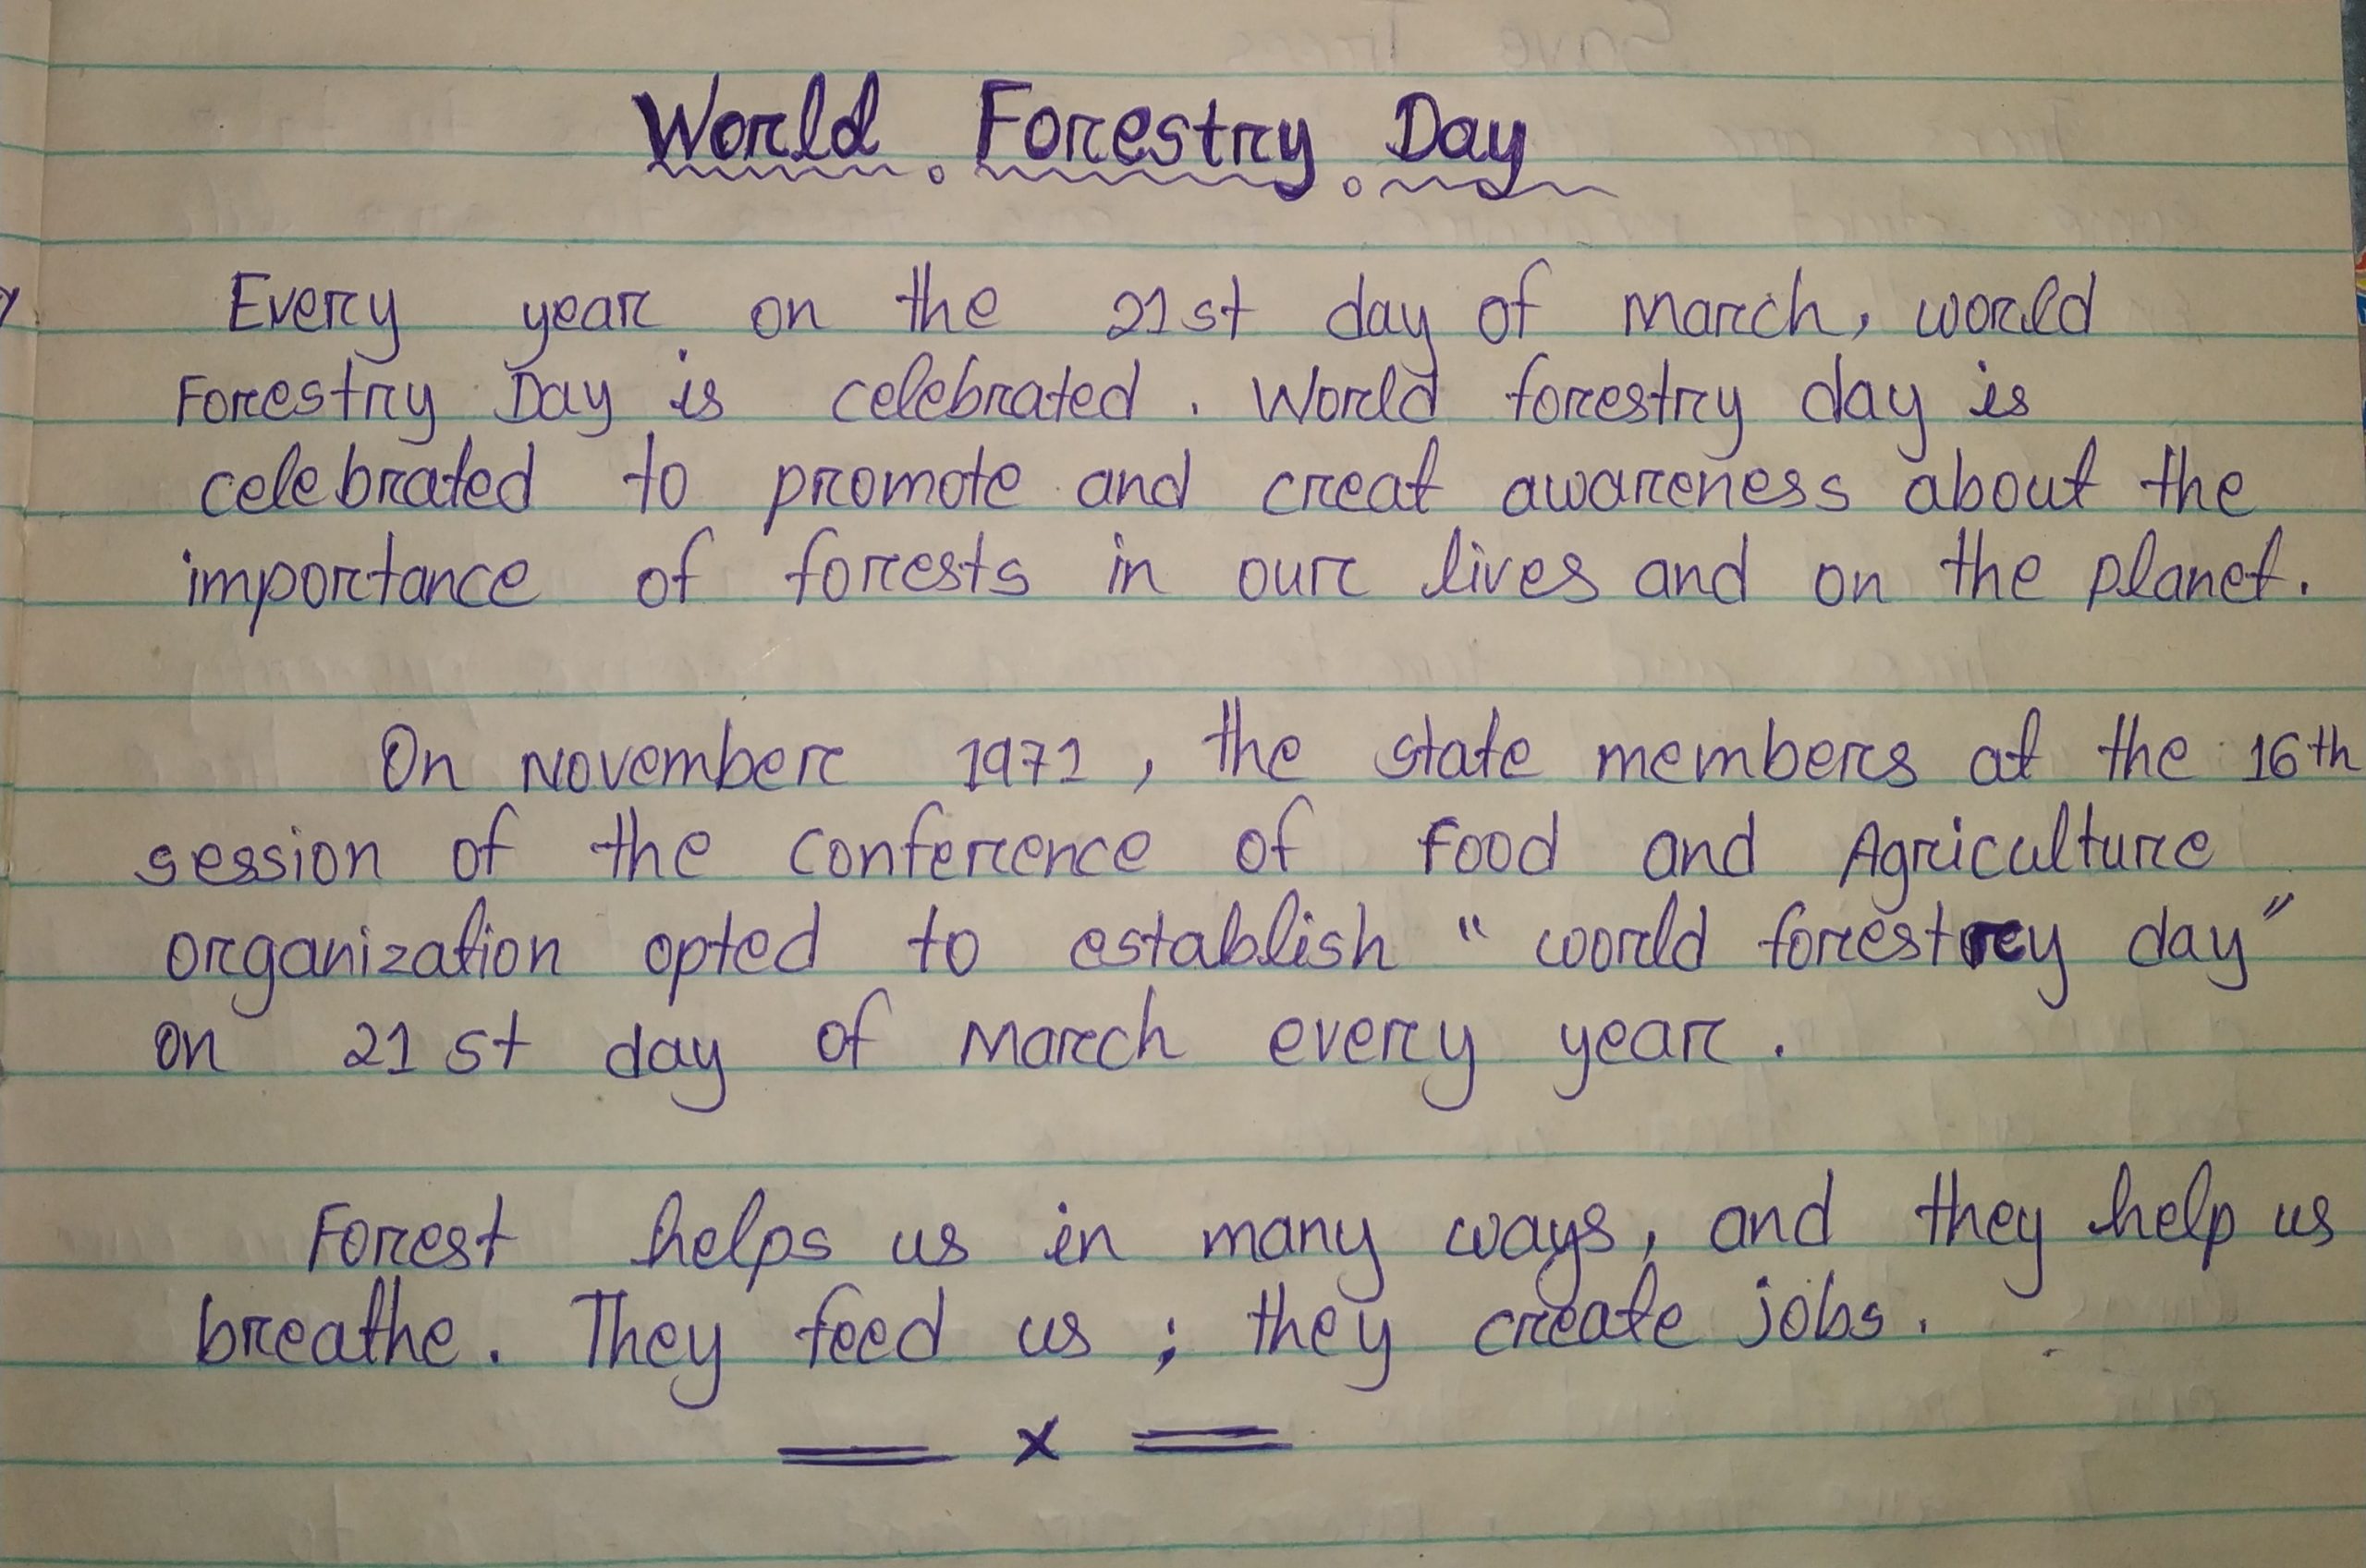 World Forestry Day
Every year on the 21st day of March, world
Forestry Day is celebrated. World forestry day is
celebrated to promote and creat awareness about the
importance of forests in our lives and on the planet.
On November 1971, the state members at the 16th
session of the conference of Food and Agriculture
organization opted to establish "world forestry day"
on 21st day of March every year.
Forest helps us in many ways, and they help us
breathe. They feed us; they create jobs.
x